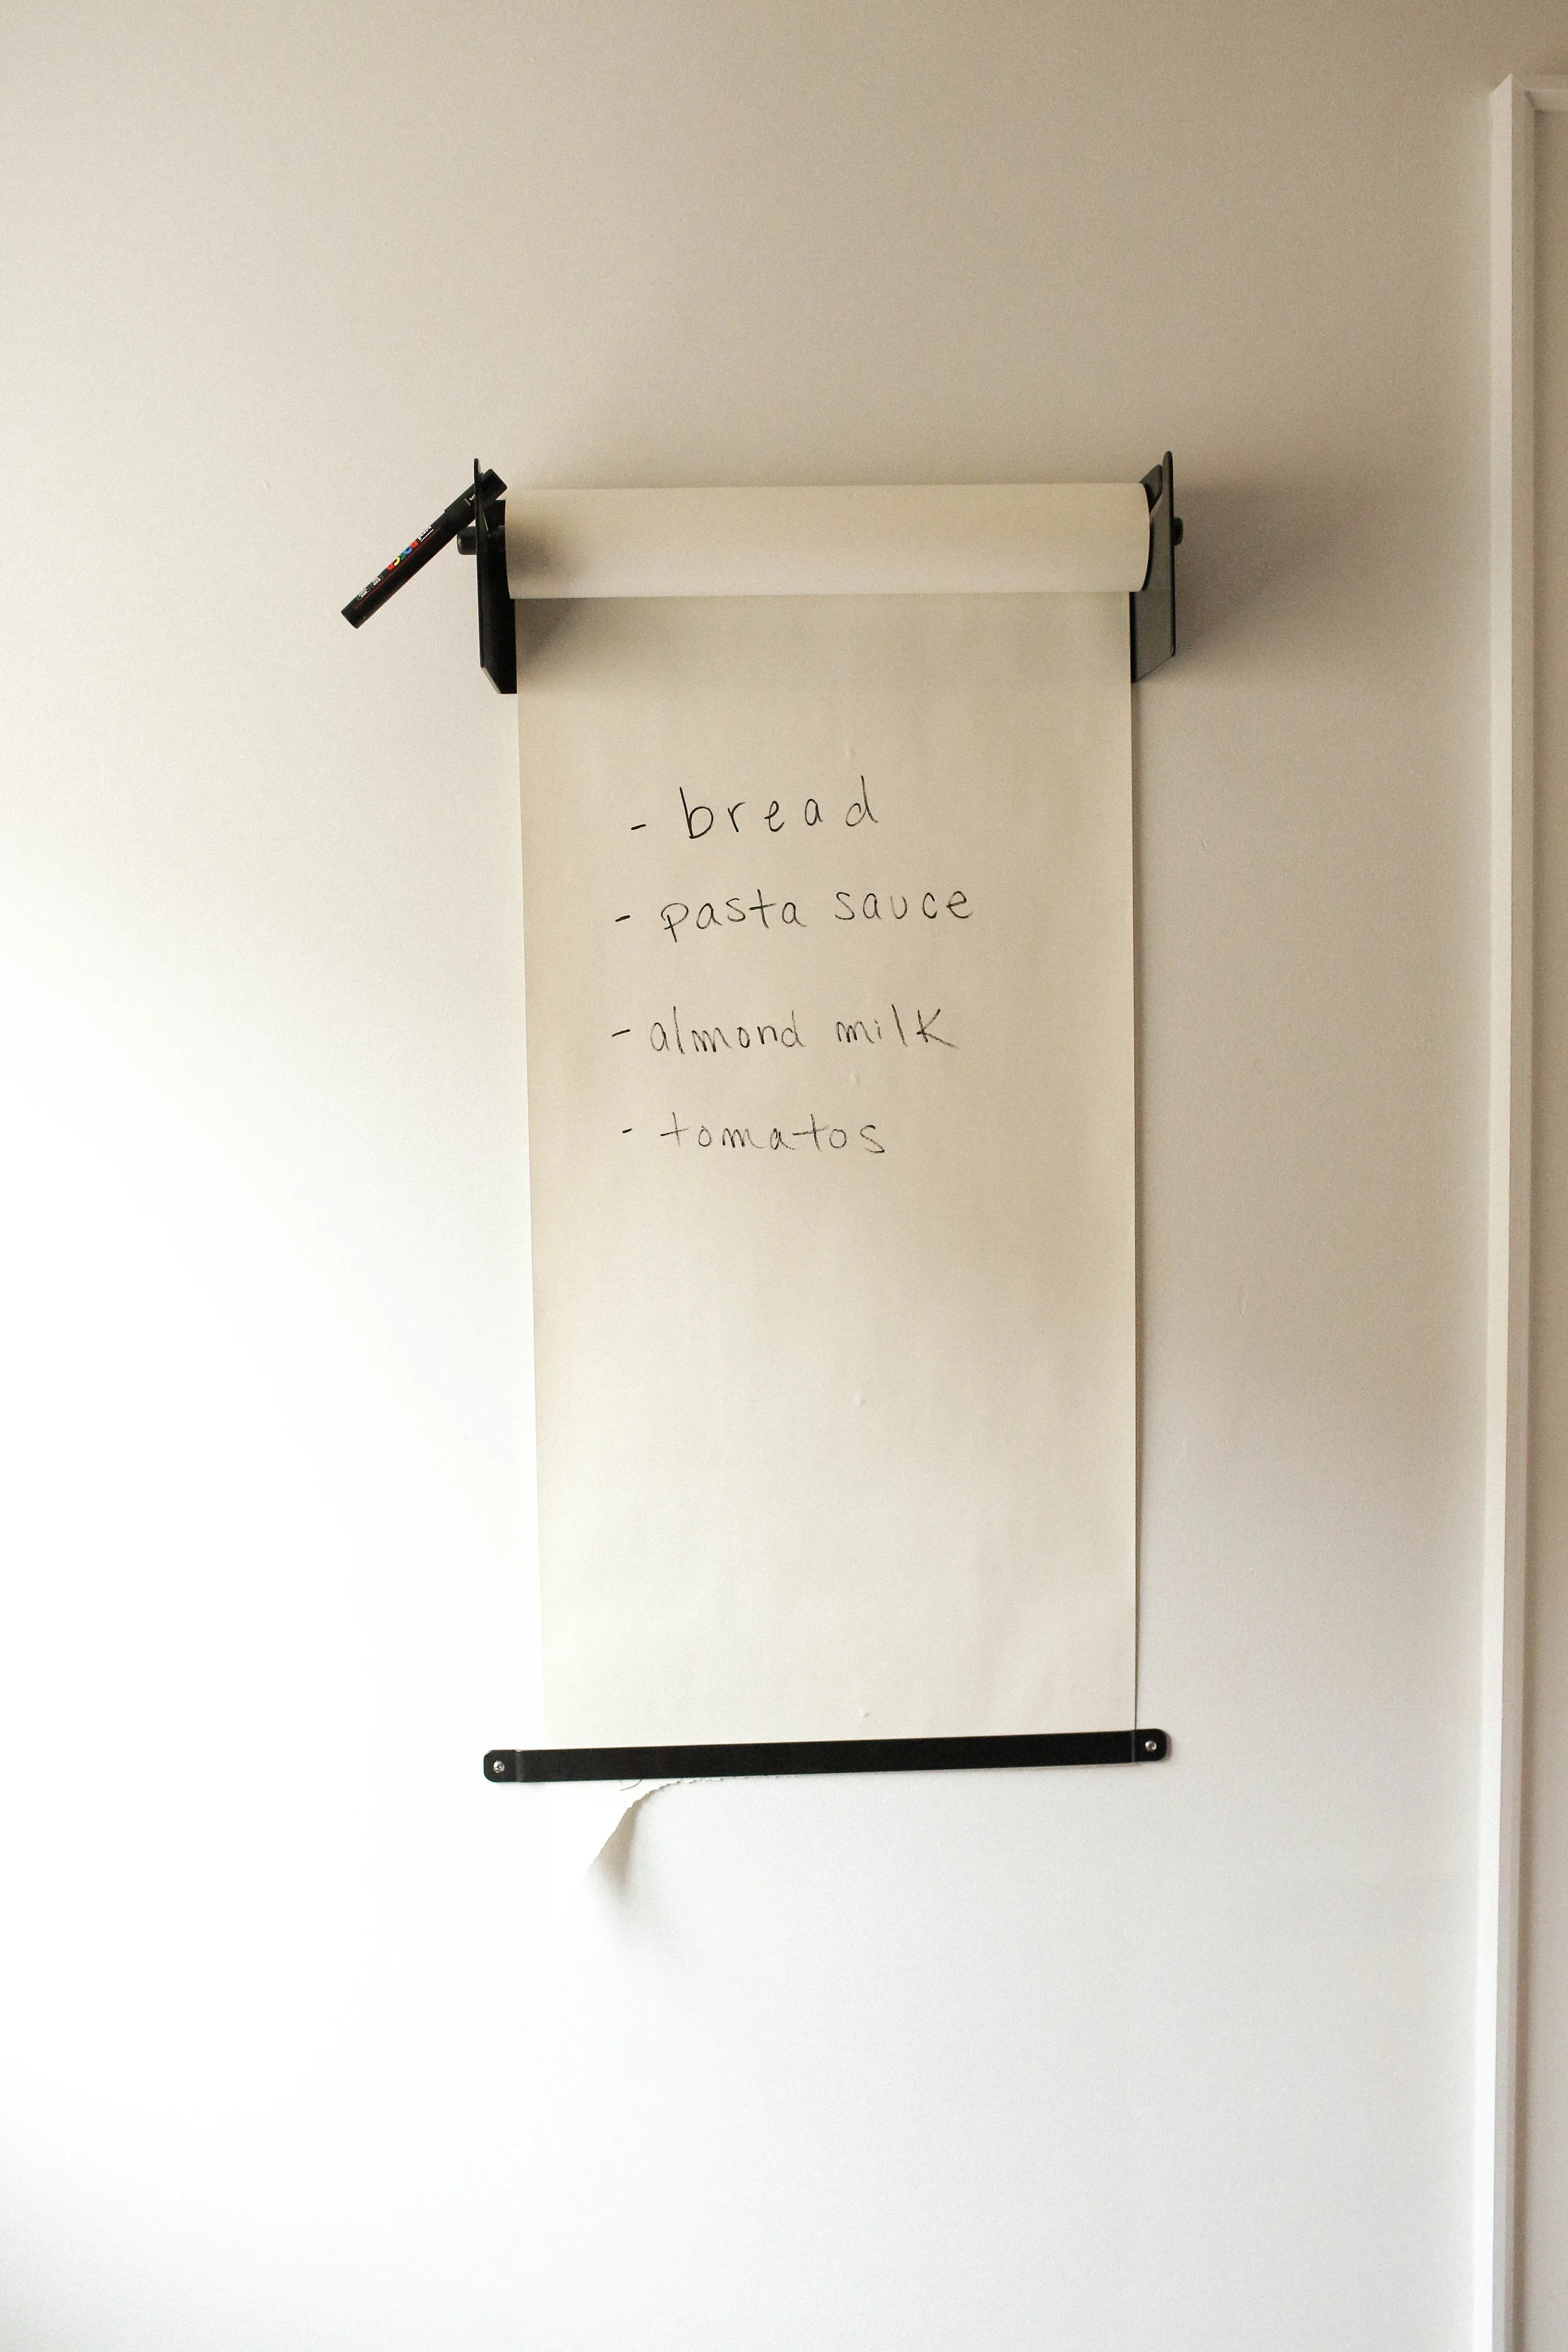 - bread
- pasta sauce
- almond milk
- tomatos
POSCA